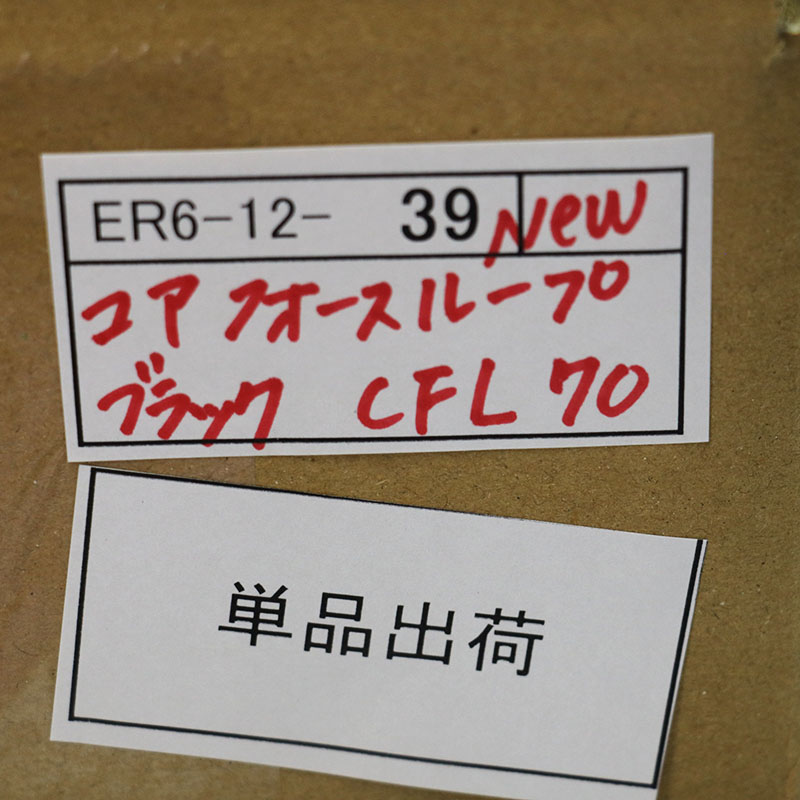 ER6-12- 39 New
コア フォースループ
ブラック CFL 70
単品出荷